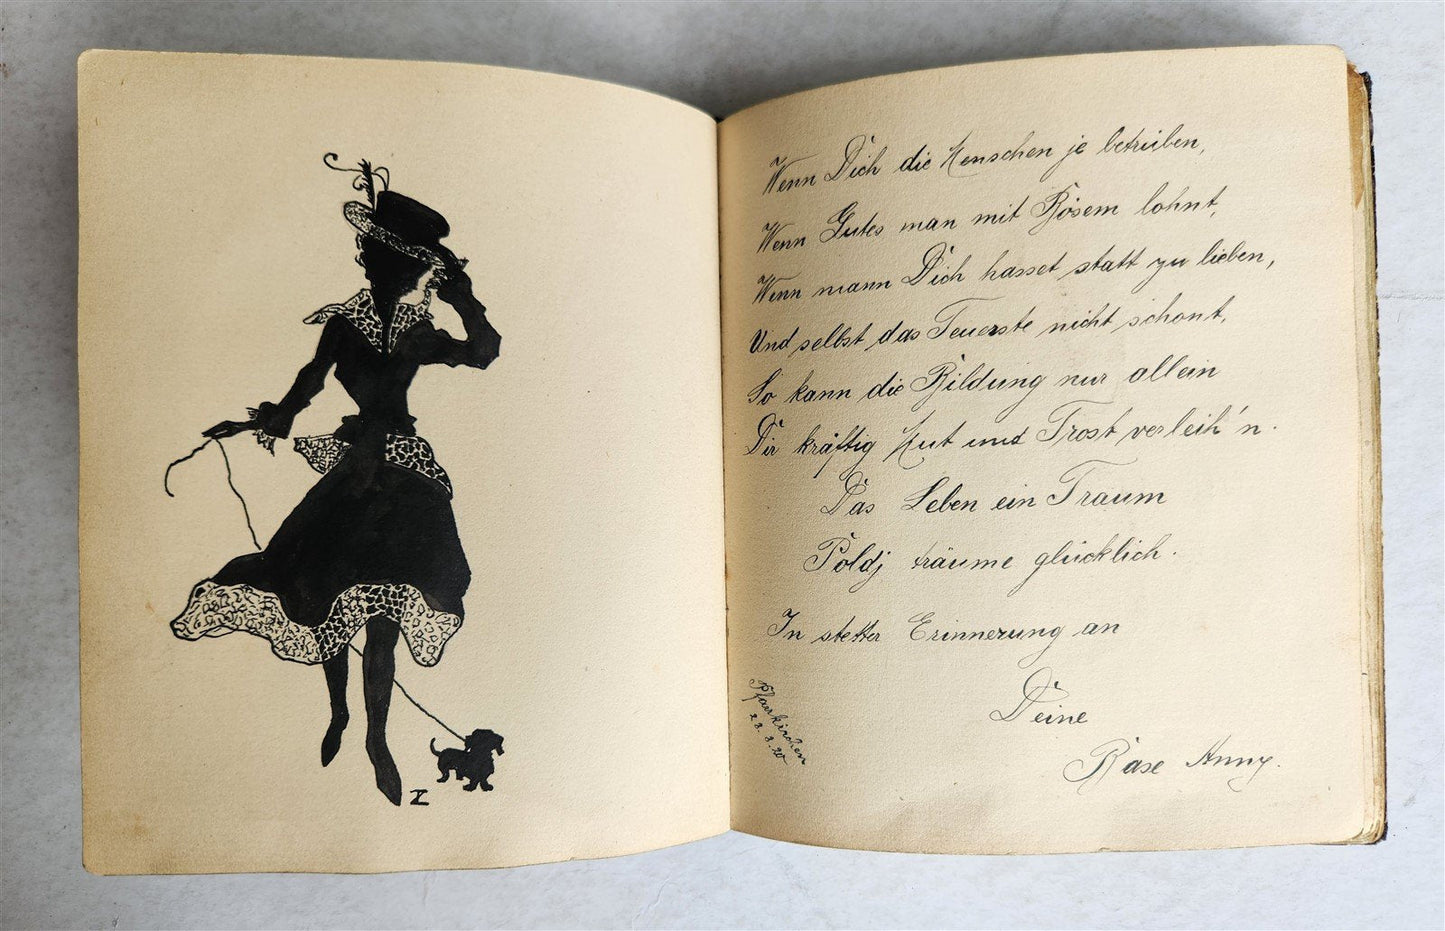 Z
Wenn Dich die Menschen je betrüben,
Wenn Gutes man mit Bösem lohnt,
Wenn mann Dich hasset statt zu lieben,
Und selbst das Teuerste nicht schont,
So kann die Bildung nur allein
Dir kräftig Mut und Trost verleih'n.
Das Leben ein Traum
Poldj träume glücklich.
In stetter Erinnerung an
Deine
Base Anny.
Pfarrkirchen
23.3.20